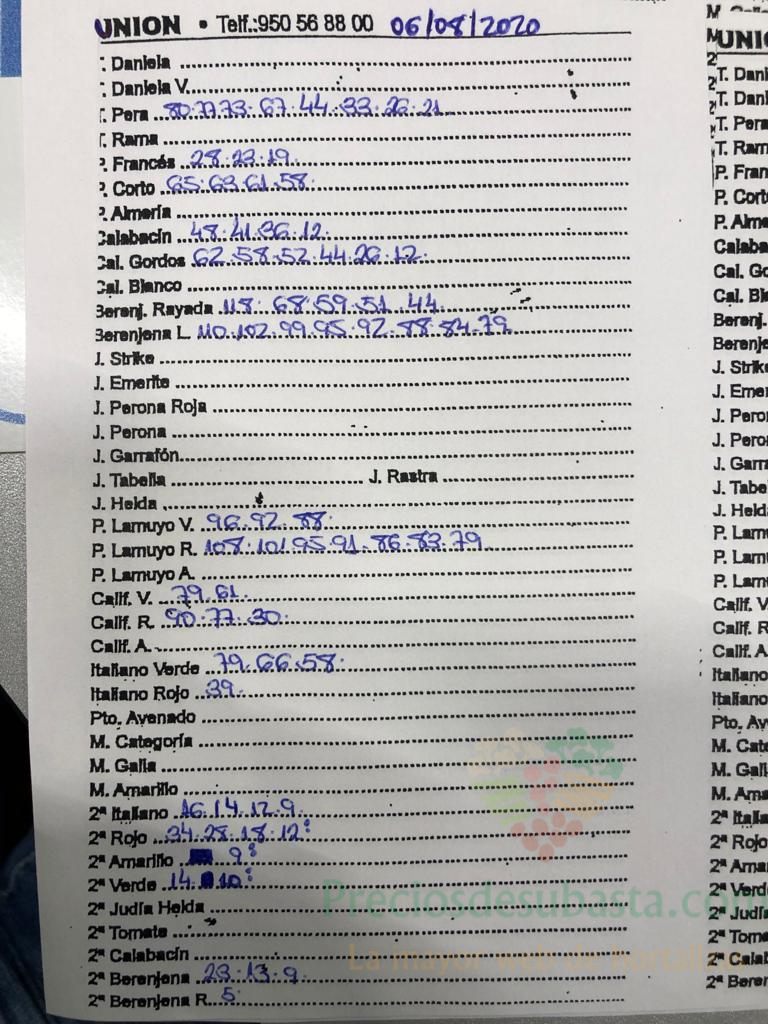 UNION • Telf.:950 56 88 00 06/08/2020
T. Daniela
T. Daniela V.
T. Pera 80.77.73.67.44.33.26.21
T. Rama
P. Francés 28.23.19.
P. Corto 65.63.61.58.
P. Almería
Calabacín 48.41.36.12.
Cal. Gordos 62.58.52.44.26.12.
Cal. Blanco
Berenj. Rayada 118. 68.59.51.44.
Berenjena L. 110.102.99.95.92.88.84.79
J. Strike
J. Emerite
J. Perona Roja
J. Perona
J. Garrafón
J. Tabella J. Rastra
J. Helda
P. Lamuyo V. 96.92.88.
P. Lamuyo R. 108.101.95.91.86.83.79
P. Lamuyo A.
Calif. V. 79.61.
Calif. R. 90.77.30.
Calif. A.
Italiano Verde 79.66.58.
Italiano Rojo 39.
Pto. Avenado
M. Categoría
M. Galia
M. Amarillo
2ª Italiano 16.14.12.9.
2ª Rojo 34.28.18.12:
2ª Amarillo 9:
2ª Verde 14. 10:
2ª Judía Helda
2ª Tomate
2ª Calabacín
2ª Berenjena 23.13.9
2ª Berenjena R. 5.
Preciosdesubasta.com
La mayor web de hortali
UNI
T. Dani
T. Dani
T. Pera
T. Ram
P. Fran
P. Cort
P. Alme
Calaba
Cal. Go
Cal. Bl
Berenj.
Berenje
J. Strik
J. Eme
J. Pero
J. Pero
J. Garr
J. Tabe
J. Held
P. Lam
P. Lam
P. Lam
Calif. V
Calif. R
Calif. A
Italiano
Italiano
Pto. Av
M. Cate
M. Gali
M. Ama
2ª Itali
2ª Rojo
2ª Ama
2ª Verd
2ª Judí
2ª Tom
2ª Calab
2ª Beren